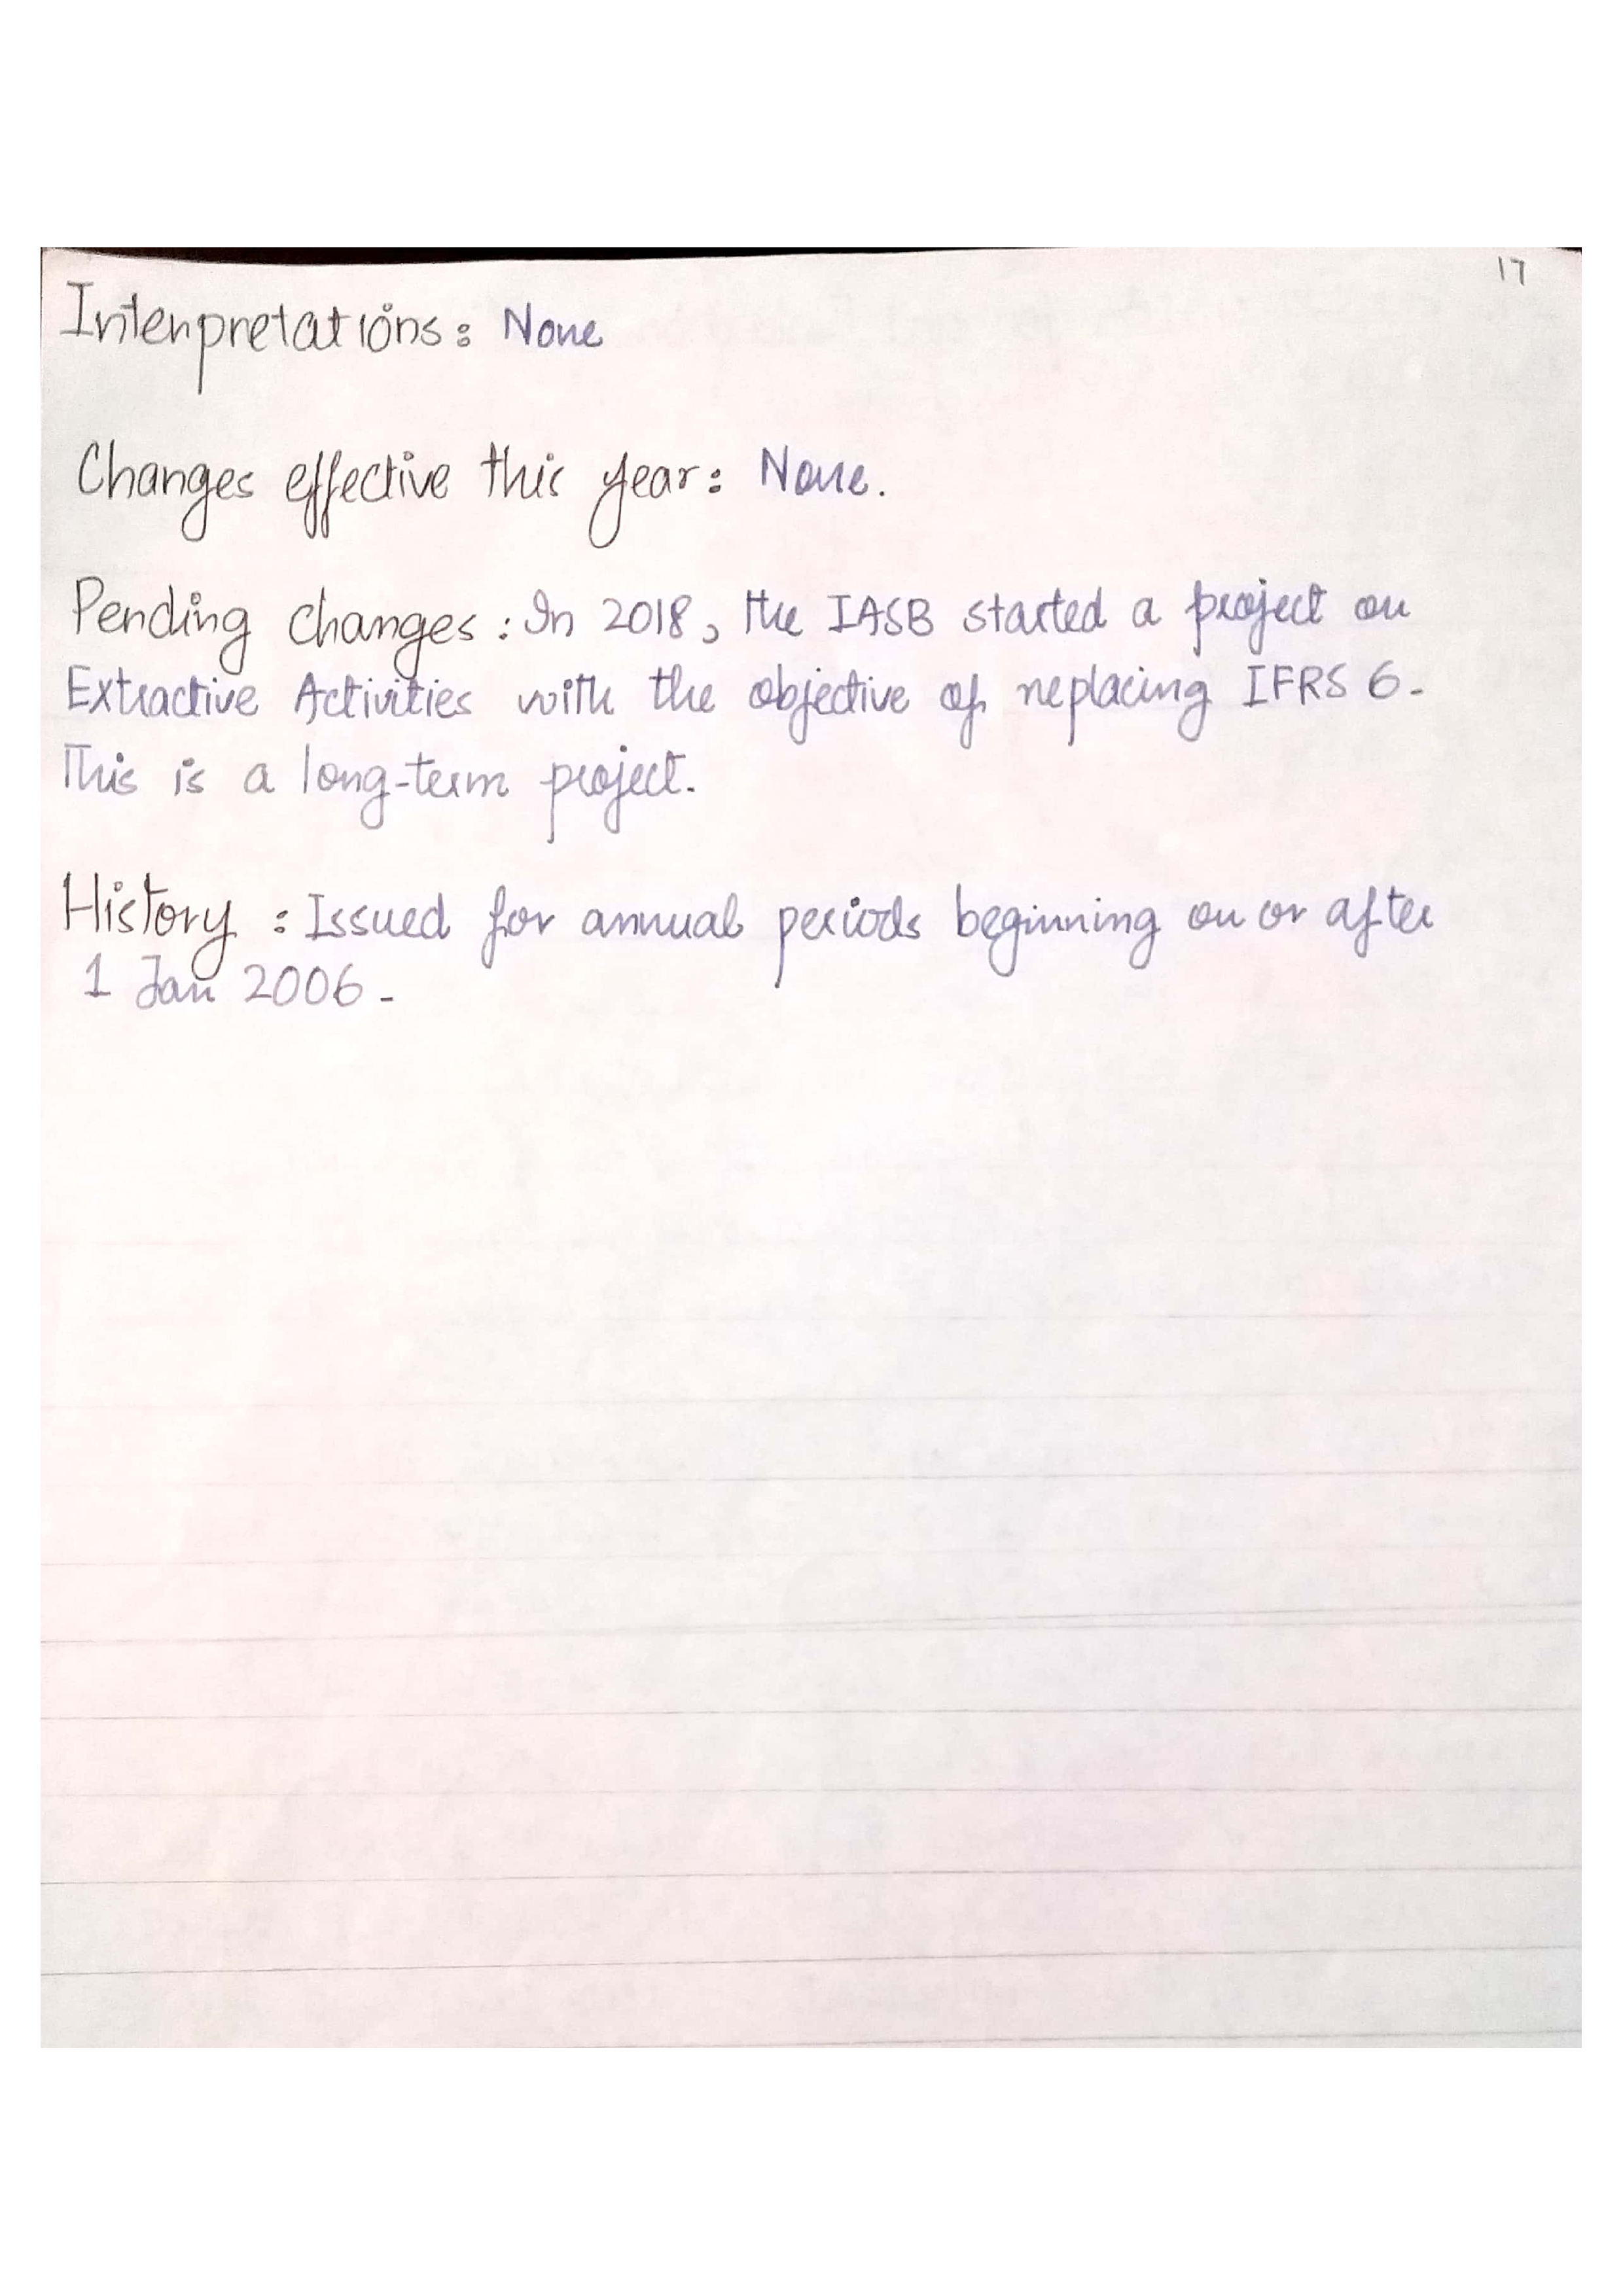 17
Interpretations: None
Changes effective this year: None.
Pending changes: In 2018, the IASB started a project on
Extractive Activities with the objective of replacing IFRS 6.
This is a long-term project.
History: Issued for annual periods beginning on or after
1 Jan 2006.